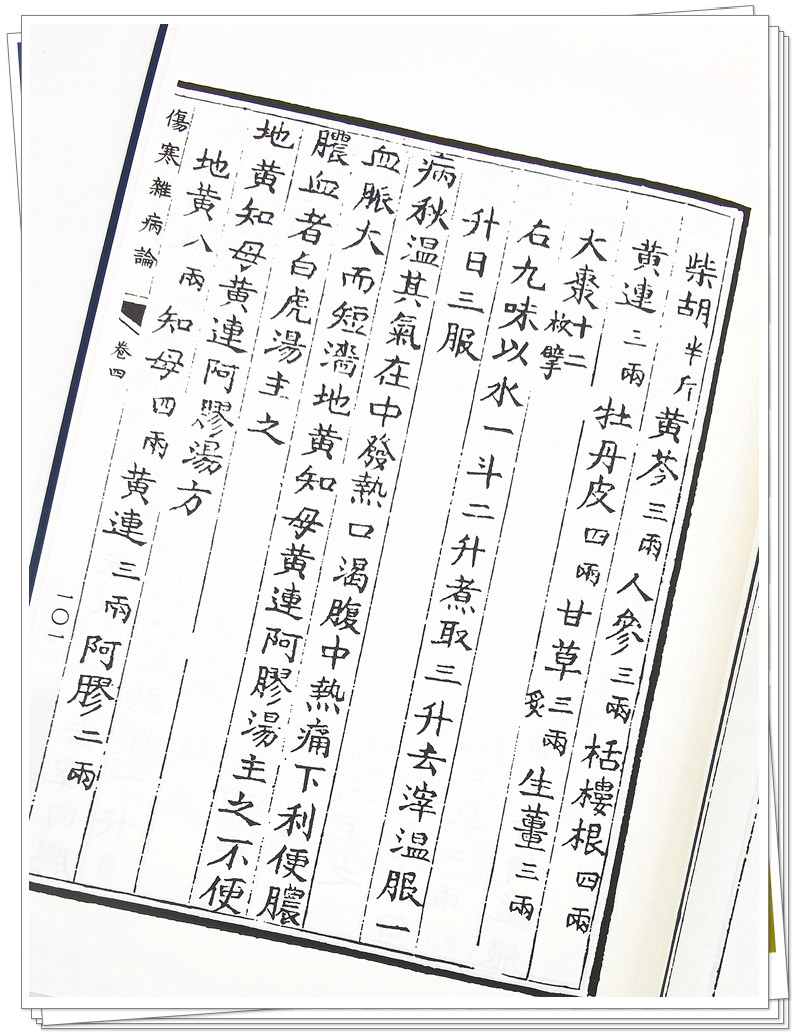 柴胡半斤 黄芩三兩 人參三兩 栝樓根四兩
黄連三兩 牡丹皮四兩 甘草三兩炙 生薑三兩
大棗十二枚擘
右九味以水一斗二升煮取三升去滓温服一
升日三服
病秋温其氣在中發熱口渴腹中熱痛下利便膿
血脈大而短濇地黄知母黄連阿膠湯主之不便
膿血者白虎湯主之
地黄知母黄連阿膠湯方
地黄八兩 知母四兩 黄連三兩 阿膠二兩
傷寒雜病論 卷四 一〇一